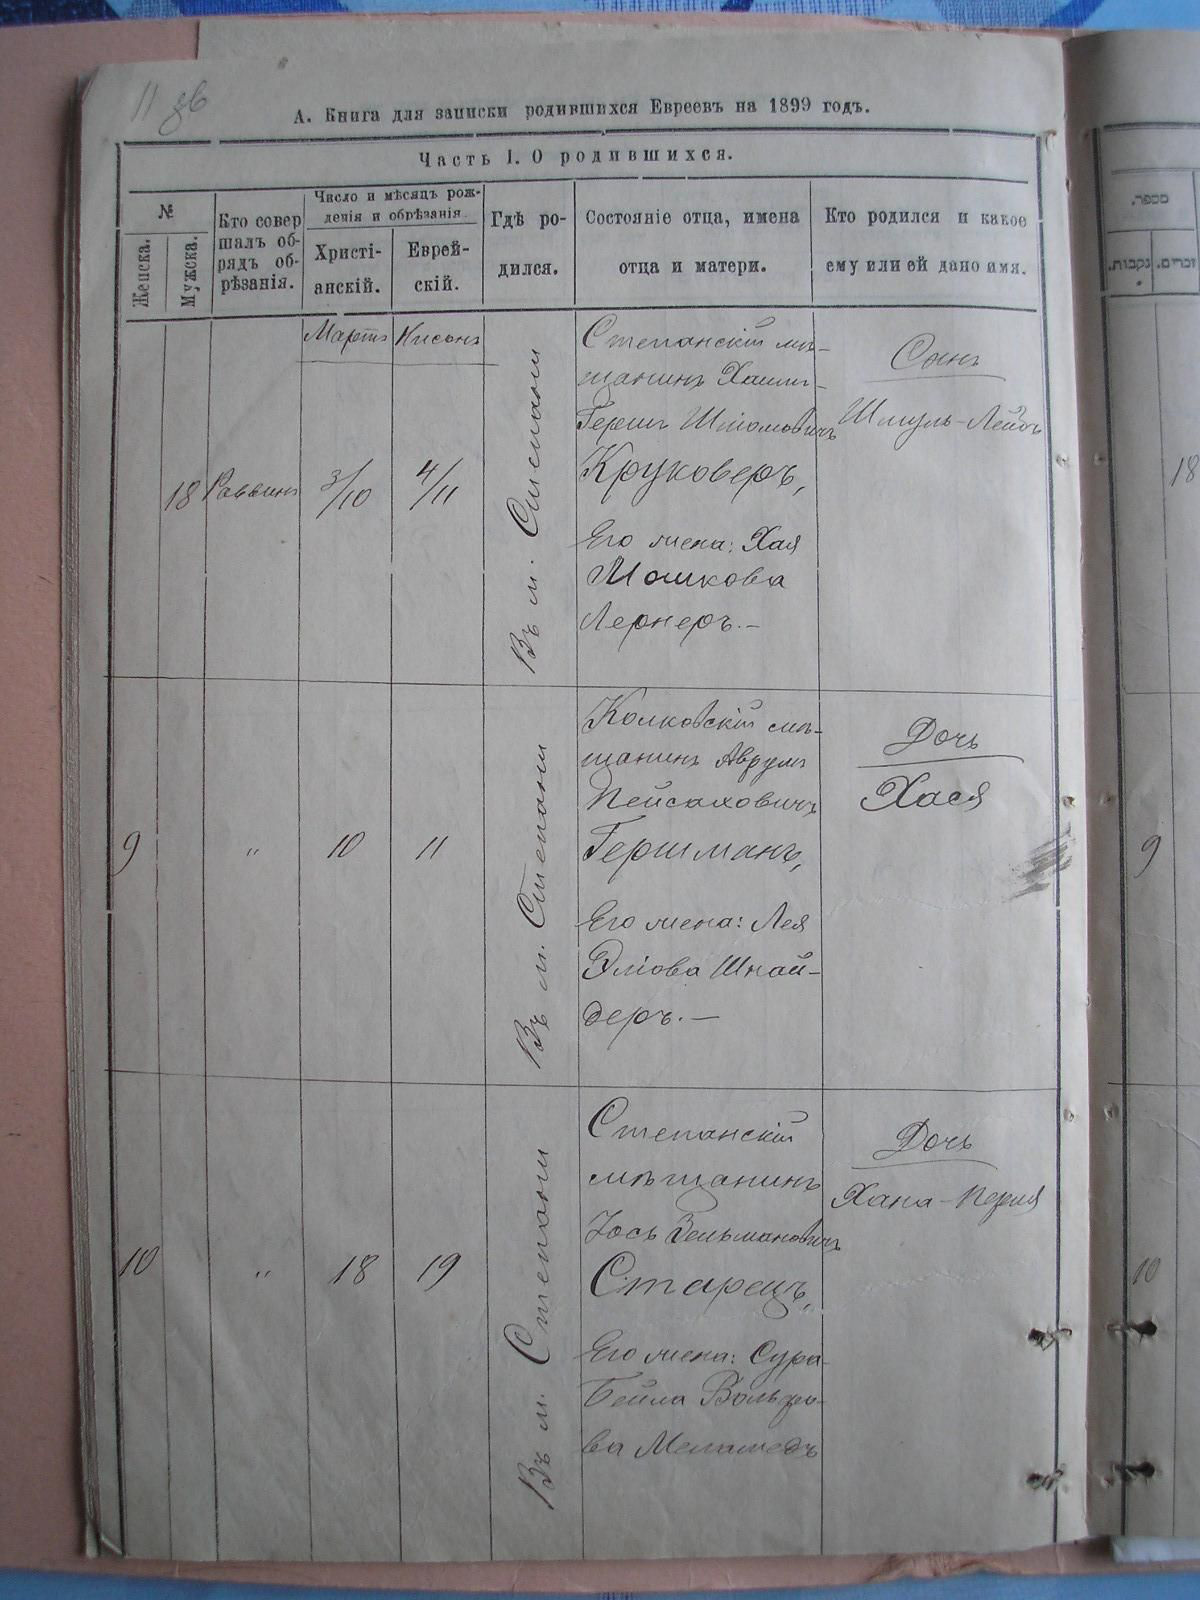 11 зв
А. Книга для записки родившихся Евреевъ на 1899 годъ.
Часть I. О родившихся.
№
Женска.
Мужска.
Кто совер
шалъ об-
рядъ об-
рѣзанія.
Число и мѣсяцъ рож-
денія и обрѣзанія.
Христі-
анскій.
Еврей-
скій.
Гдѣ ро-
дился.
Состояніе отца, имена
отца и матери.
Кто родился и какое
ему или ей дано имя.
Мартъ
Нисонъ
18
Раввинъ
3/10
4/11
Въ м. Степани
Степанскій мѣ-
щанинъ Хаимъ-
Гершъ Шліомовичъ
Круковеръ,
Его жена: Хая
Мошкова
Лернеръ.—
Сынъ
Шмуль-Лейбъ
9
"
10
11
Въ м. Степани
Колковскій мѣ-
щанинъ Аврумъ
Пейсаховичъ
Гершманъ,
Его жена: Лея
Эліова Шнай-
деръ.—
Дочь
Хася
10
"
18
19
Въ м. Степани
Степанскій
мѣщанинъ
Іось Зельмановичъ
Старецъ,
Его жена: Сура-
Бейла Вольфо-
ва Меламедъ
Дочь
Хана-Перля
מספר.
נקבות.
זכרים.
18
9
10